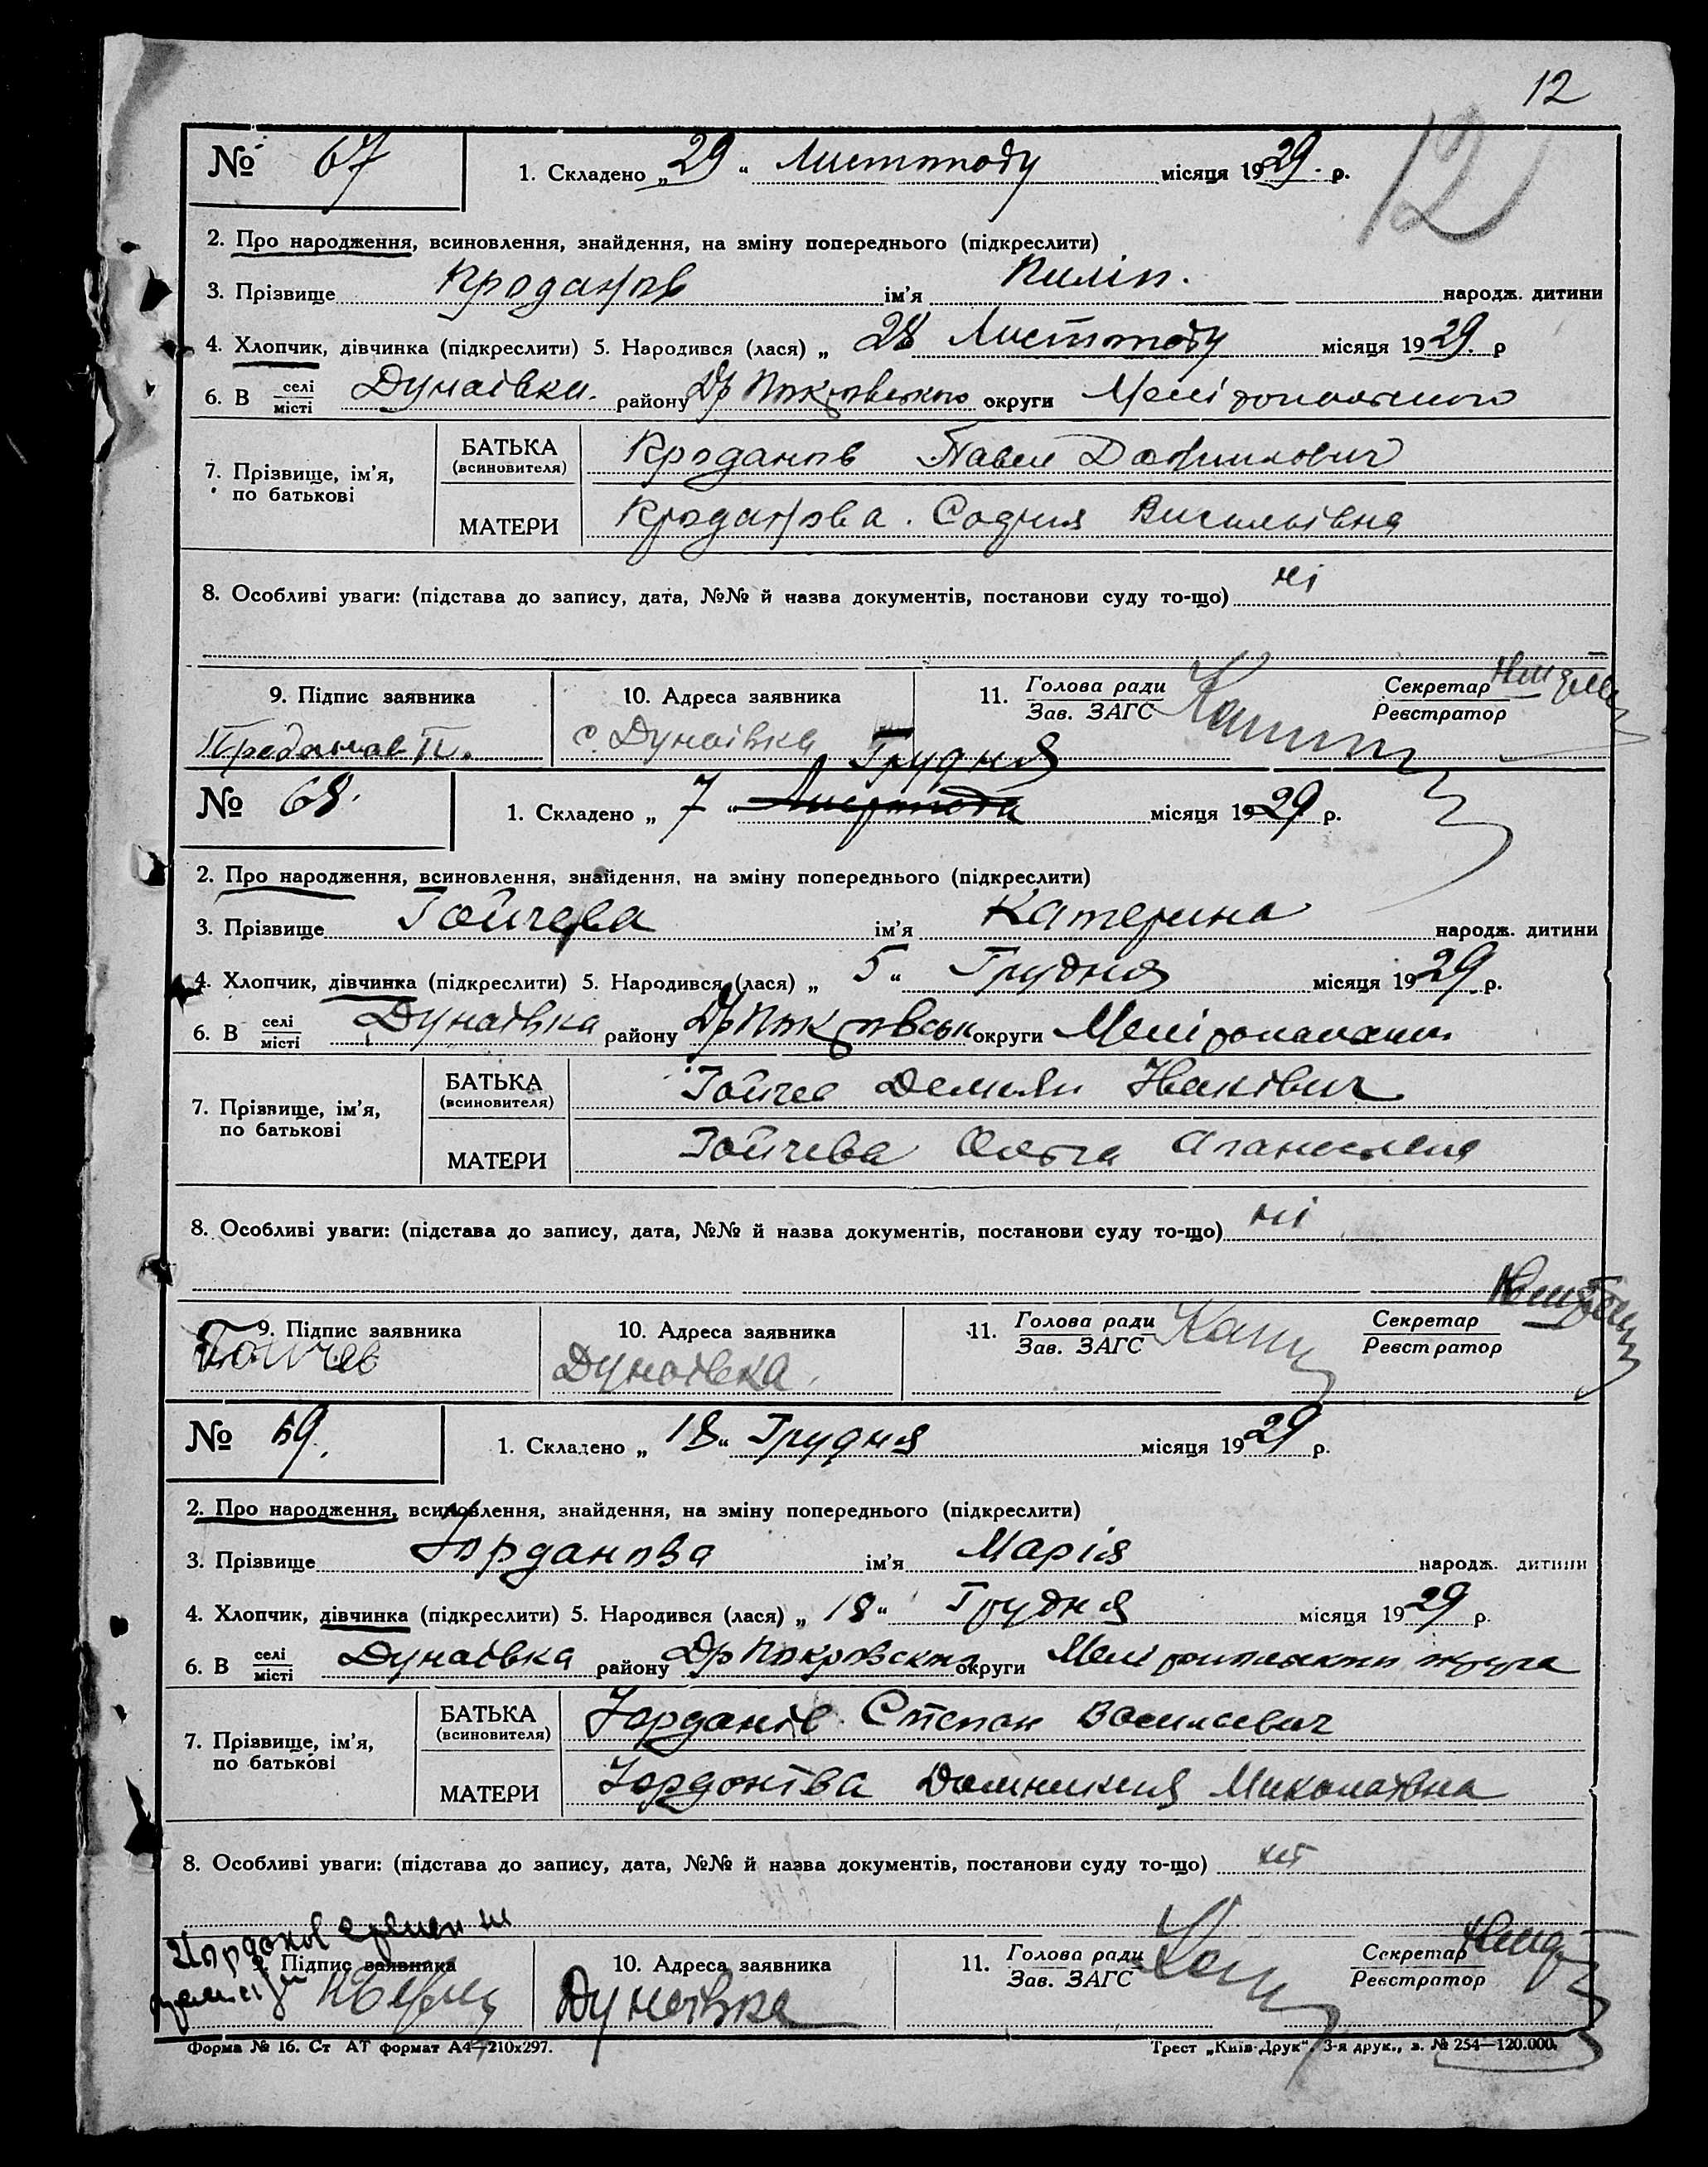 12
12
№ 67
1. Складено „29“ Листопаду місяця 1929. р.
2. Про народження, всиновлення, знайдення, на зміну попереднього (підкреслити)
3. Прізвище Проданов ім'я Пиліп. народж. дитини
4. Хлопчик, дівчинка (підкреслити) 5. Народився (лася) „ 28 Листопаду місяця 1929. р
6. В селі місті Дунаівка. району Др Покровського округи Мелітопольського
7. Прізвище, ім'я, по батькові
БАТЬКА (всиновителя) Проданов Павел
МАТЕРИ Проданова. София Васильівна
8. Особливі уваги: (підстава до запису, дата, №№ й назва документів, постанови суду то-що) ні
9. Підпис заявника
Проданов П.
10. Адреса заявника
с. Дунаівка
11. Голова ради Зав. ЗАГС
Секретар Реєстратор
№ 68.
Грудня
1. Складено „ 7 “ Листопада місяця 1929. р.
2. Про народження, всиновлення, знайдення, на зміну попереднього (підкреслити)
3. Прізвище Гойчева ім'я Катерина народж. дитини
4. Хлопчик, дівчинка (підкреслити) 5. Народився (лася) „ 5 “ Грудня місяця 1929. р.
6. В селі місті Дунаівка району Др Покровськ округи
7. Прізвище, ім'я, по батькові
БАТЬКА (всиновителя) Гойчев Демьян Иванівич
МАТЕРИ Гойчева Ольга
8. Особливі уваги: (підстава до запису, дата, №№ й назва документів, постанови суду то-що) ні
9. Підпис заявника
Гойчев
10. Адреса заявника
Дунаівка.
11. Голова ради Зав. ЗАГС
Секретар Реєстратор
№ 69.
1. Складено „ 18 “ Грудня місяця 1929 р.
2. Про народження, всиновлення, знайдення, на зміну попереднього (підкреслити)
3. Прізвище Йорданова ім'я Марія народж. дитини
4. Хлопчик, дівчинка (підкреслити) 5. Народився (лася) „ 18 “ Грудня місяця 1929 р.
6. В селі місті Дунаівка району Др Покровского округи
7. Прізвище, ім'я, по батькові
БАТЬКА (всиновителя) Йорданів Степан Васильевич
МАТЕРИ Йорданіва Домникия Миколаівна
8. Особливі уваги: (підстава до запису, дата, №№ й назва документів, постанови суду то-що)
Иорданов
9. Підпис заявника
10. Адреса заявника
Дунаівка
11. Голова ради Зав. ЗАГС
Секретар Реєстратор
Форма № 16. Ст АТ формат А4—210х297.
Трест „Київ-Друк“. 3-я друк., з. № 254—120.000.